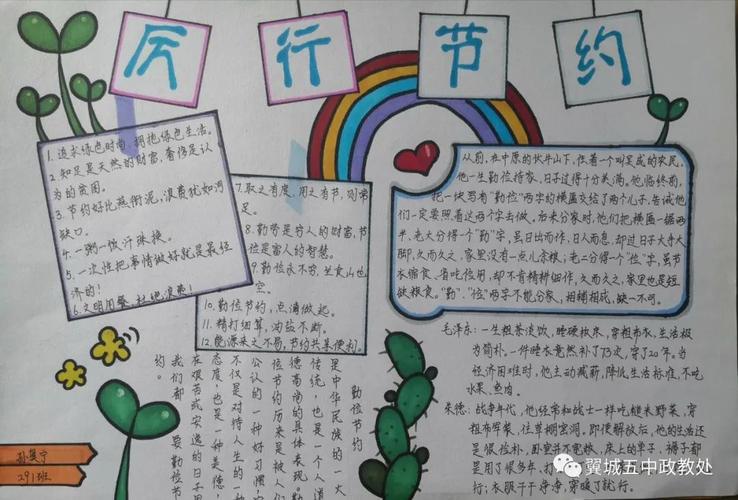 厉行节约
1. 追求绿色时尚，拥抱绿色生活。
2 知足是天然的财富，奢侈是认
为的贫困。
3. 节约好比燕衔泥，浪费犹如河
缺口。
4. 一粥一饭汗珠换。
5. 一次性把事情做好就是最经
济的！
6. 文明用餐，杜绝浪费！
7. 取之有度，用之有节，则常
足。
8. 勤劳是穷人的财富，节
俭是富人的智慧。
9. 勤俭永不穷，坐食山也
空。
10. 勤俭节约，点滴做起。
11. 精打细算，油盐不断。
12. 能源来之不易，节约共享便利。
从前，在中原的伏牛山下，住着一个叫吴成的农民，
他一生勤俭持家，日子过得十分美满。他临终前，
把一块写有"勤俭"两字的横匾交给了两个儿子，告诫他
们一定要照着这两个字去做。后来分家时，他们把横匾一锯两
半，老大分得一个"勤"字，虽日出而作，日入而息，却过日子大手大
脚，久而久之，家里没有一点儿余粮；老二分得一个"俭"字，虽节
衣缩食、省吃俭用，却不肯精耕细作，久而久之，家里也是短
缺粮食。"勤"、"俭"两字不能分家，相辅相成，缺一不可。
毛泽东：一生粗茶淡饭，睡硬板床，穿粗布衣，生活极
为简朴，一件睡衣竟然补了73次，穿了20年。当
经济困难时，他主动减薪，降低生活标准，不吃
水果、鱼肉。
朱德：战争年代，他经常和战士一样吃糙米野菜，穿
粗布军装，住草棚窑洞。即使解放后，他的生活还
是很俭朴，卧室并不宽敞，床上的单子、褥子都
是用了很多年，打
行；衣服干干净净，穿暖了就行。
勤俭节约
是中华民族的一大
传统，也是一个人道
德高尚的具体表现。勤
俭节约历来是被人们
公认的一种好习惯，
不仅是对待人生的一种
态度，也是一种美德
在艰苦或安逸的日子里
我们都要勤俭节
约。
291班
翼城五中政教处